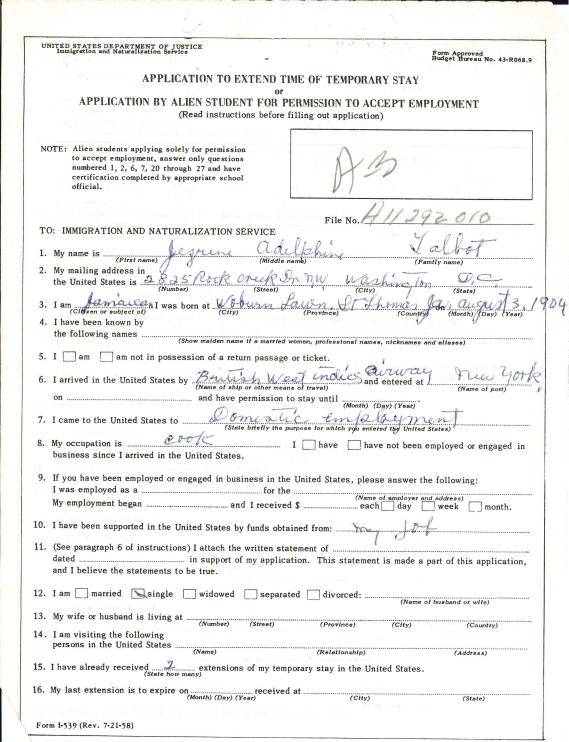 UNITED STATES DEPARTMENT OF JUSTICE
Immigration and Naturalization Service
Form Approved
Budget Bureau No. 43-R068.9
APPLICATION TO EXTEND TIME OF TEMPORARY STAY
or
APPLICATION BY ALIEN STUDENT FOR PERMISSION TO ACCEPT EMPLOYMENT
(Read instructions before filling out application)
NOTE: Alien students applying solely for permission
to accept employment, answer only questions
numbered 1, 2, 6, 7, 20 through 27 and have
certification completed by appropriate school
official.
File No. A11 292 010
TO: IMMIGRATION AND NATURALIZATION SERVICE
1. My name is Adelphine Talbot
(First name) (Middle name) (Family name)
2. My mailing address in
the United States is 2825 Rock Creek Dr NW Washington DC
(Number) (Street) (City) (State)
3. I am Jamaican I was born at Woburn Lawn, St Thomas, Ja, on august 3, 1904
(Citizen or subject of) (City) (Province) (Country) (Month) (Day) (Year)
4. I have been known by
the following names
(Show maiden name if a married women, professional names, nicknames and aliases)
5. I am am not in possession of a return passage or ticket.
6. I arrived in the United States by British West indies airway and entered at New York
(Name of ship or other means of travel) (Name of port)
on and have permission to stay until
(Month) (Day) (Year)
7. I came to the United States to Domestic employment
(State briefly the purpose for which you entered the United States)
8. My occupation is cook I have have not been employed or engaged in
business since I arrived in the United States.
9. If you have been employed or engaged in business in the United States, please answer the following:
I was employed as a for the
(Name of employer and address)
My employment began and I received $ each day week month.
10. I have been supported in the United States by funds obtained from: my job
11. (See paragraph 6 of instructions) I attach the written statement of
dated in support of my application. This statement is made a part of this application,
and I believe the statements to be true.
12. I am married single widowed separated divorced:
(Name of husband or wife)
13. My wife or husband is living at
(Number) (Street) (Province) (City) (Country)
14. I am visiting the following
persons in the United States
(Name) (Relationship) (Address)
15. I have already received 2 extensions of my temporary stay in the United States.
(State how many)
16. My last extension is to expire on received at
(Month) (Day) (Year) (City) (State)
Form I-539 (Rev. 7-21-58)